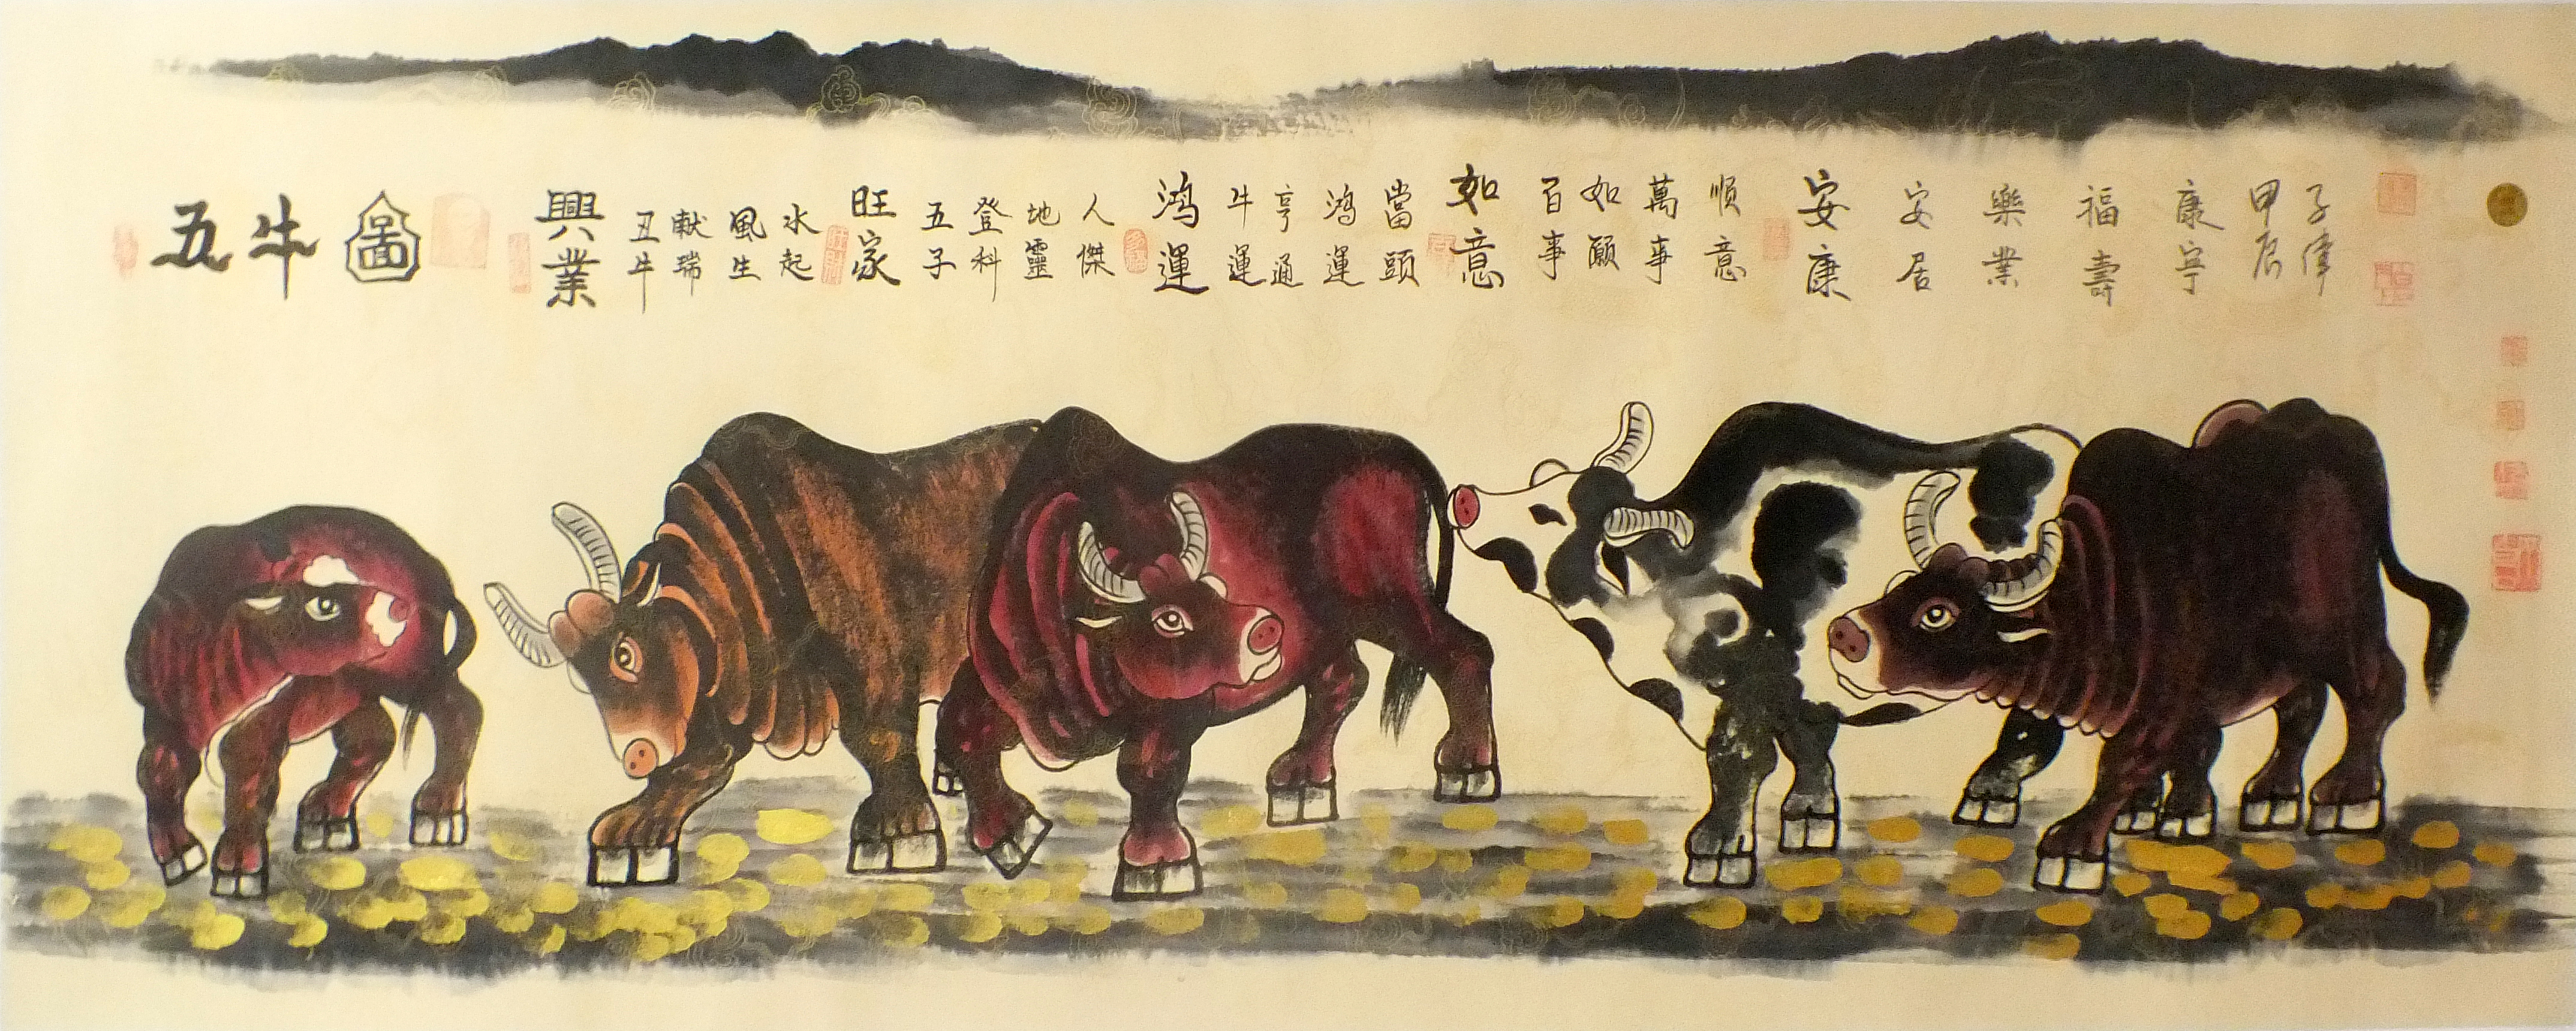 五牛圖
興業
丑牛
献瑞
風生
水起
旺家
五子
登科
地靈
人傑
鸿運
牛運
亨通
鸿運
當頭
如意
百事
如願
萬事
順意
安康
安居
樂業
福壽
康寧
甲辰
子偉